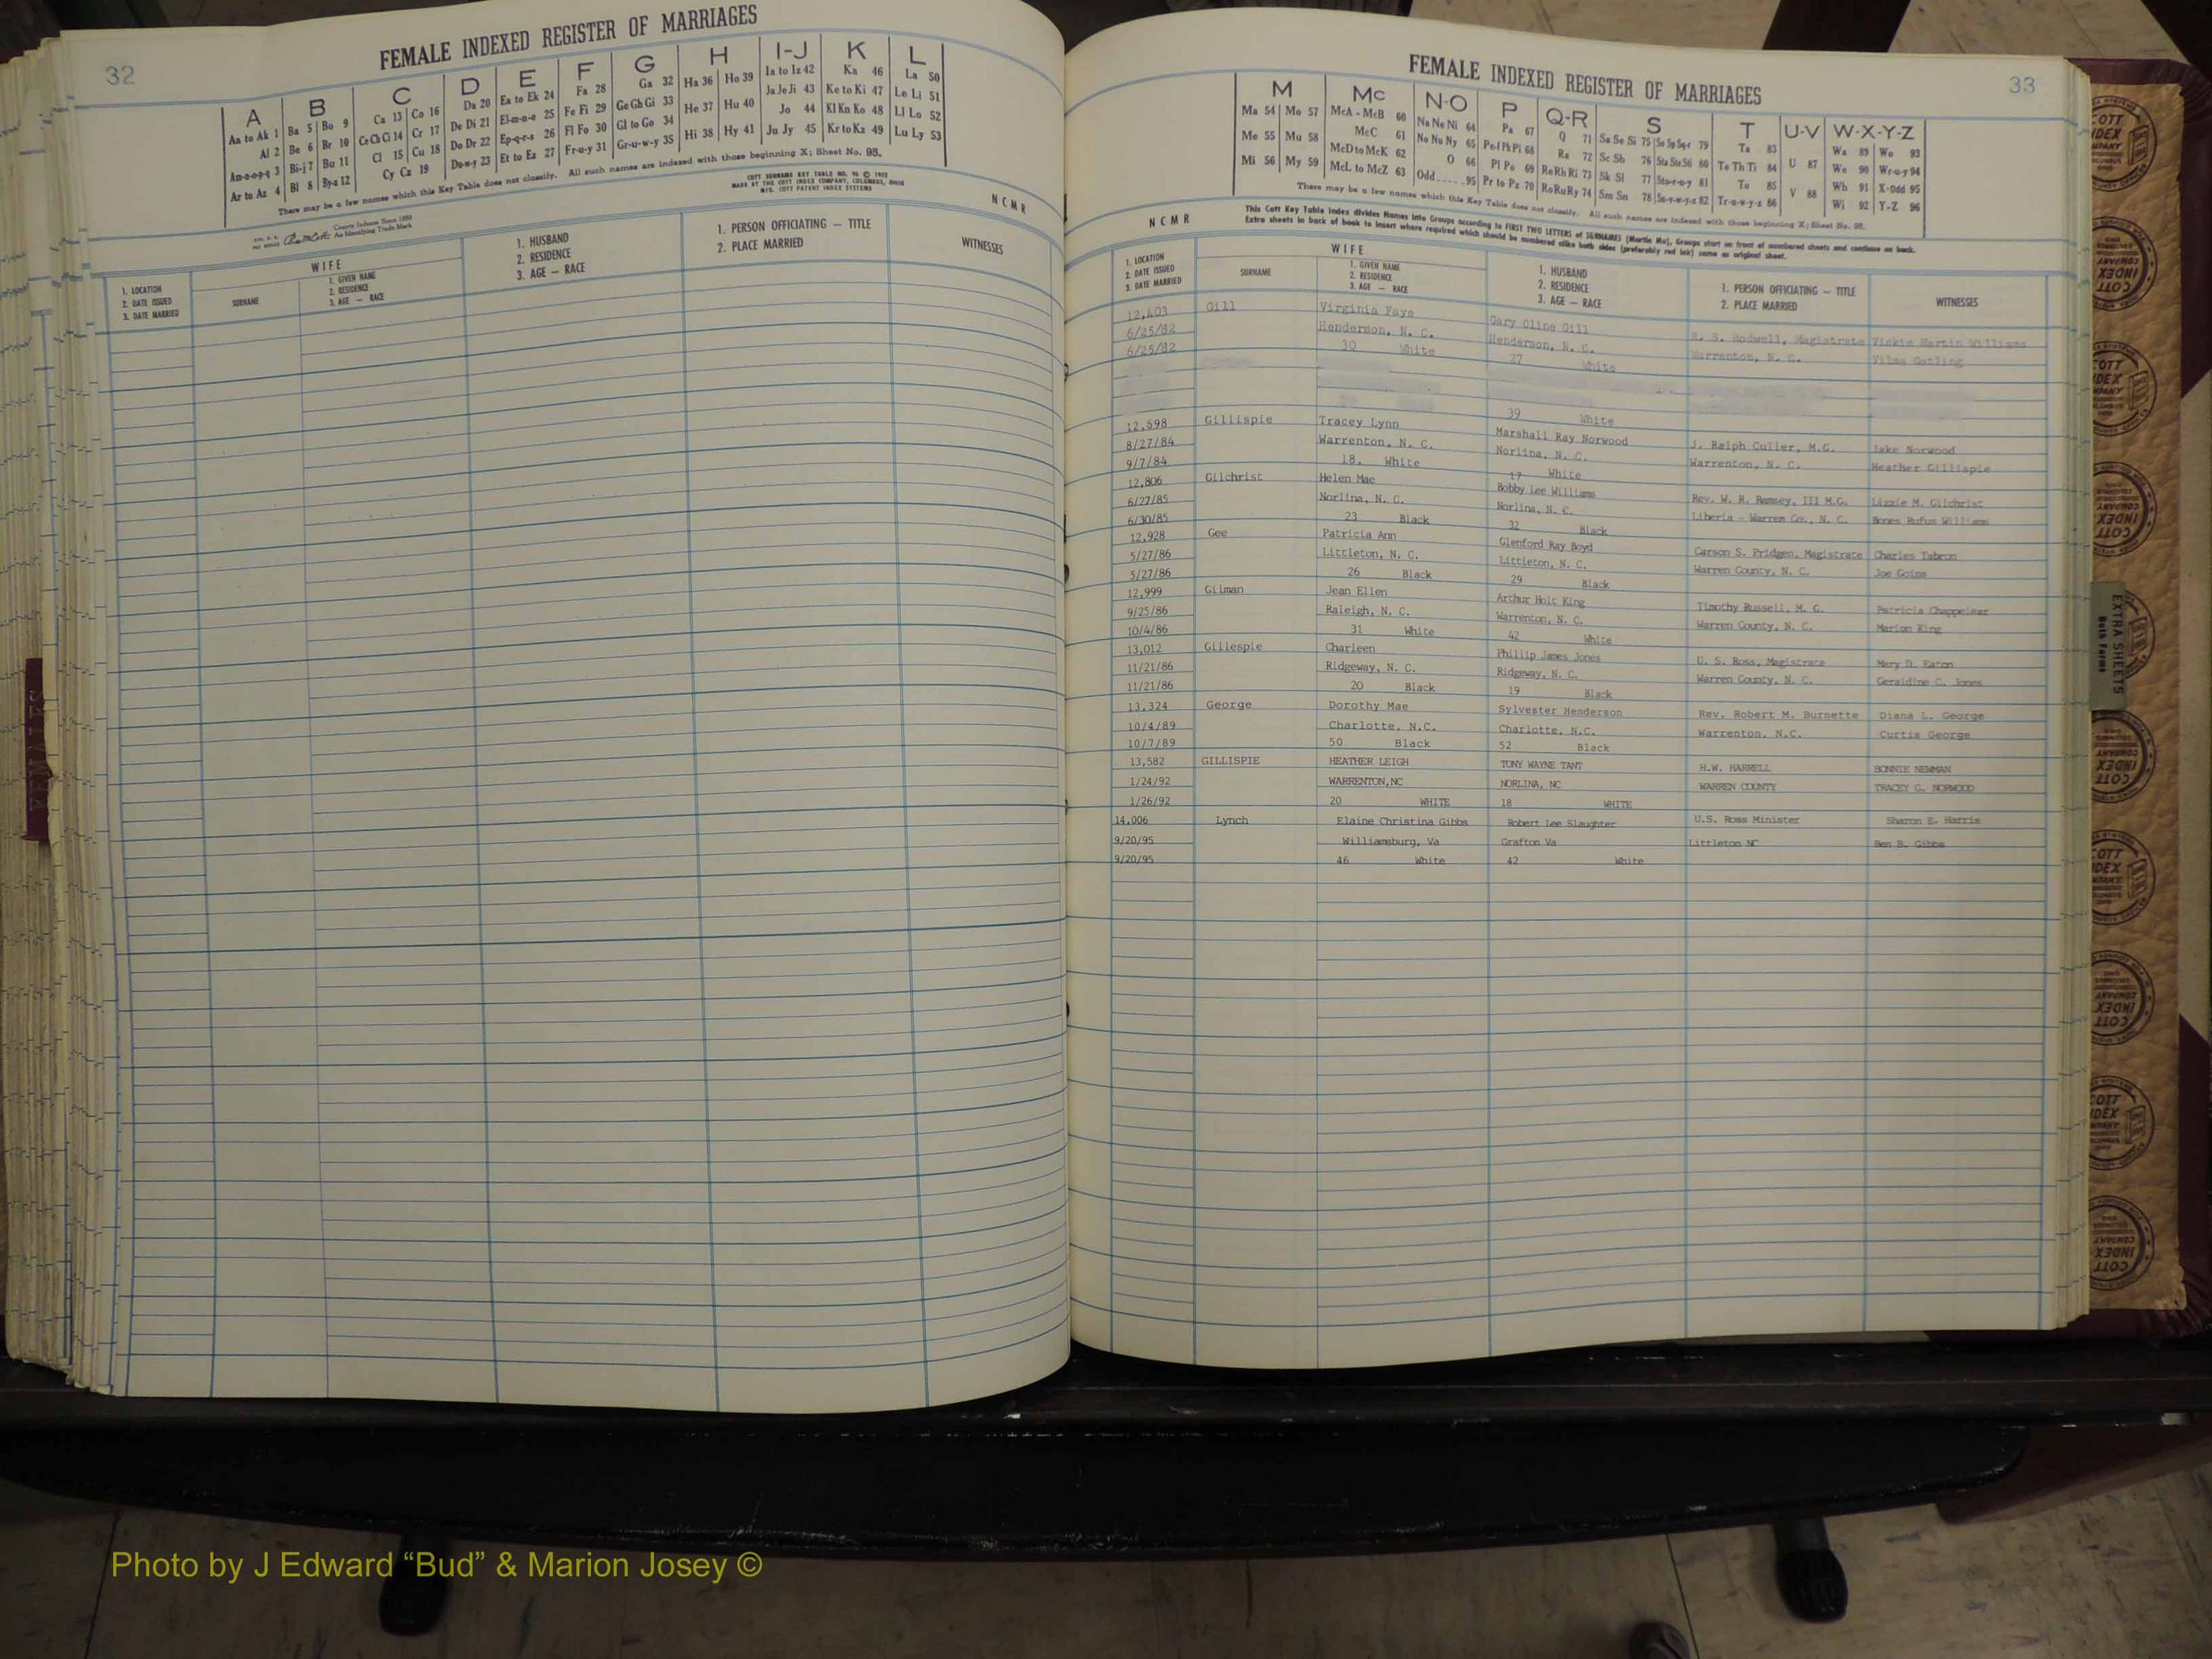 32
FEMALE INDEXED REGISTER OF MARRIAGES
A B C D E F G H I-J K L
Aa to Ak 1 Ba 5 Bo 9 Ca 13 Co 16 Da 20 Ea to Ek 24 Fa 28 Ga 32 Ha 36 Ho 39 Ia to Iz 42 Ka 46 La 50
Al 2 Be 6 Br 10 Ce Ch Ci 14 Cr 17 De Di 21 El-m-n-o 25 Fe Fi 29 Ge Gh Gi 33 He 37 Hu 40 Ja Je Ji 43 Ke to Ki 47 Le Li 51
Am-n-o-p-q 3 Bi-j 7 Bu 11 Cl 15 Cu 18 Do Dr 22 Ep-q-r-s 26 Fl Fo 30 Gl to Go 34 Hi 38 Hy 41 Jo 44 Kl Kn Ko 48 Ll Lo 52
Ar to Az 4 Bl 8 By-z 12 Cy Cz 19 Du-w-y 23 Et to Ez 27 Fr-u-y 31 Gr-u-w-y 35 Ju Jy 45 Kr to Kz 49 Lu Ly 53
There may be a few names which this Key Table does not classify. All such names are indexed with those beginning X; Sheet No. 95.
COTT SURNAME KEY TABLE NO. 96 ©
MADE BY THE COTT INDEX COMPANY, COLUMBUS, OHIO
MFG. COTT PATENT INDEX SYSTEMS
County Indexes Since 1888
An Identifying Trade Mark
N C M R
1. LOCATION
2. DATE ISSUED
3. DATE MARRIED
WIFE
SURNAME
1. GIVEN NAME
2. RESIDENCE
3. AGE — RACE
1. HUSBAND
2. RESIDENCE
3. AGE — RACE
1. PERSON OFFICIATING — TITLE
2. PLACE MARRIED
WITNESSES
FEMALE INDEXED REGISTER OF MARRIAGES
33
M Mc N-O P Q-R S T U-V W-X-Y-Z
Ma 54 Mo 57 McA - McB 60 Na Ne Ni 64 Pa 67 Q 71 Sa Se Si 75 So Sp Sq-r 79 Ta 83 U 87 Wa 89 Wo 93
Me 55 Mu 58 McC 61 No Nu Ny 65 Pe-f Ph Pi 68 Ra 72 Sc Sh 76 Sta Ste Sti 80 Te Th Ti 84 V 88 We 90 Wr-u-y 94
Mi 56 My 59 McD to McK 62 O 66 Pl Po 69 Re Rh Ri 73 Sk Sl 77 Sto-r-u-y 81 To 85 Wh 91 X-Odd 95
McL to McZ 63 Odd 95 Pr to Pz 70 Ro Ru Ry 74 Sm Sn 78 Su-v-w-y-z 82 Tr-u-w-y-z 86 Wi 92 Y-Z 96
There may be a few names which this Key Table does not classify. All such names are indexed with those beginning X; Sheet No. 95.
N C M R
This Cott Key Table Index divides Names into Groups according to FIRST TWO LETTERS of SURNAMES (Martin Ma), Groups start on front of numbered sheets and continue on back.
Extra sheets in back of book to insert where required which should be numbered alike both sides (preferably red ink) same as original sheet.
1. LOCATION
2. DATE ISSUED
3. DATE MARRIED
WIFE
SURNAME
1. GIVEN NAME
2. RESIDENCE
3. AGE — RACE
1. HUSBAND
2. RESIDENCE
3. AGE — RACE
1. PERSON OFFICIATING — TITLE
2. PLACE MARRIED
WITNESSES
12,403 Gill Virginia Faye Gary Cline Gill R. S. Rodwell, Magistrate Vickie Martin Williams
6/25/82 Henderson, N. C. Henderson, N. C. Warrenton, N. C. Vilma Gatling
6/25/82 30 White 27 White
39 White
12,698 Gillispie Tracey Lynn Marshall Ray Norwood J. Ralph Culler, M.G. Jake Norwood
8/27/84 Warrenton, N. C. Norlina, N. C. Warrenton, N. C. Heather Gillispie
9/7/84 18. White 17 White
12,806 Gilchrist Helen Mae Bobby Lee Williams Rev. W. R. Ramsey, III M.G. Lizzie M. Gilchrist
6/27/85 Norlina, N. C. Norlina, N. C. Liberia - Warren Co., N. C. Bones Rufus Williams
6/30/85 23 Black 32 Black
12,928 Gee Patricia Ann Glenford Ray Boyd Carson S. Pridgen, Magistrate Charles Tabron
5/27/86 Littleton, N. C. Littleton, N. C. Warren County, N. C. Joe Goins
5/27/86 26 Black 29 Black
12,999 Gilman Jean Ellen Arthur Holt King Timothy Russell, M. G. Patricia Chappelear
9/25/86 Raleigh, N. C. Warrenton, N. C. Warren County, N. C. Marion King
10/4/86 31 White 42 White
13,012 Gillespie Charleen Phillip James Jones U. S. Ross, Magistrate Mary D. Eaton
11/21/86 Ridgeway, N. C. Ridgeway, N. C. Warren County, N. C. Geraldine C. Jones
11/21/86 20 Black 19 Black
13,324 George Dorothy Mae Sylvester Henderson Rev. Robert M. Burnette Diana L. George
10/4/89 Charlotte, N.C. Charlotte, N.C. Warrenton, N.C. Curtis George
10/7/89 50 Black 52 Black
13,582 GILLISPIE HEATHER LEIGH TONY WAYNE TANT H.W. HARRELL BONNIE NEWMAN
1/24/92 WARRENTON,NC NORLINA, NC WARREN COUNTY TRACEY G. NORWOOD
1/26/92 20 WHITE 18 WHITE
14,006 Lynch Elaine Christina Gibbs Robert Lee Slaughter U.S. Ross Minister Sharon E. Harris
9/20/95 Williamsburg, Va Grafton Va Littleton NC Ben B. Gibbs
9/20/95 46 White 42 White
EXTRA SHEETS
Both Forms
Photo by J Edward “Bud” & Marion Josey ©